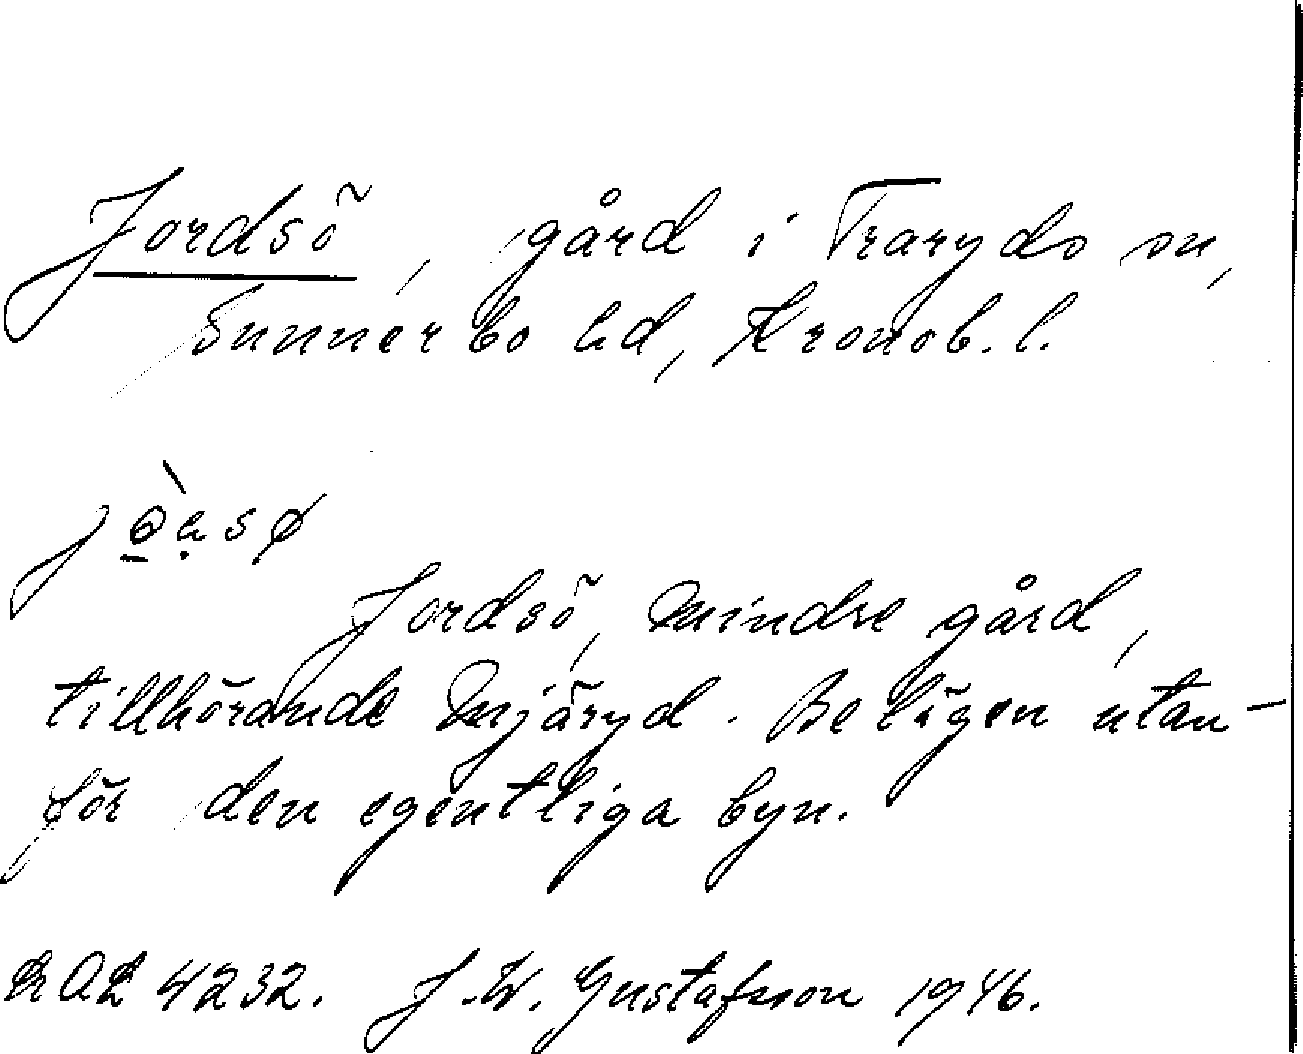 Jordsö, gård i Traryds sn,
Sunnerbo hd, Kronob. l.
Jordsö, mindre gård,
tillhörande Mjäryd. Belägen utan-
för den egentliga byn.
4232. J. W. Gustafsson 1946.